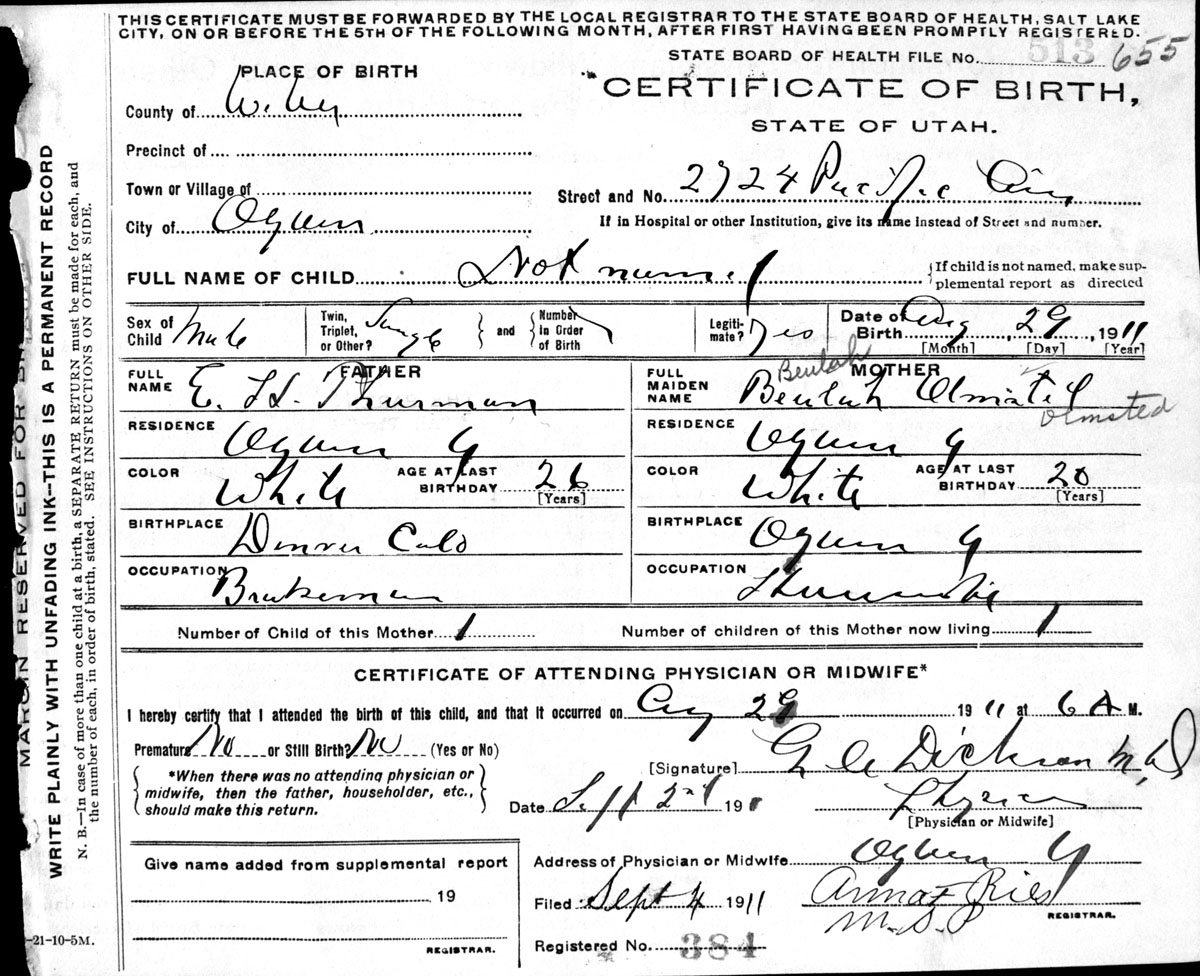 THIS CERTIFICATE MUST BE FORWARDED BY THE LOCAL REGISTRAR TO THE STATE BOARD OF HEALTH, SALT LAKE
CITY, ON OR BEFORE THE 5TH OF THE FOLLOWING MONTH, AFTER FIRST HAVING BEEN PROMPTLY REGISTERED.
STATE BOARD OF HEALTH FILE NO. 513 655
PLACE OF BIRTH
CERTIFICATE OF BIRTH,
STATE OF UTAH.
County of Weber
Precinct of
Town or Village of
Street and No. 2724 Pacific Ave
City of Ogden
If in Hospital or other Institution, give its name instead of Street and number.
FULL NAME OF CHILD Not named
{If child is not named, make sup-
plemental report as directed
Sex of Child Male
Twin, Triplet, or Other? Single
and Number in Order of Birth
Legiti-mate? Yes
Date of Birth Aug 29, 1911
[Month] [Day] [Year]
FATHER
FULL NAME E. H. Thurman
RESIDENCE Ogden
COLOR White AGE AT LAST BIRTHDAY 26 [Years]
BIRTHPLACE Denver Colo
OCCUPATION Brakeman
MOTHER
Beulah
FULL MAIDEN NAME Beulah
Olmsted
RESIDENCE Ogden
COLOR White AGE AT LAST BIRTHDAY 20 [Years]
BIRTHPLACE Ogden
OCCUPATION
Number of Child of this Mother 1 Number of children of this Mother now living 1
CERTIFICATE OF ATTENDING PHYSICIAN OR MIDWIFE*
I hereby certify that I attended the birth of this child, and that it occurred on Aug 29 1911 at 6 A M.
Premature No or Still Birth? No (Yes or No)
[Signature] Dickson M.D
*When there was no attending physician or
midwife, then the father, householder, etc.,
should make this return.
Date Sept 2nd 191
Physician
[Physician or Midwife]
Give name added from supplemental report
19
REGISTRAR.
Address of Physician or Midwife Ogden
Filed Sept 4 1911 Anna Ries
REGISTRAR.
Registered No. 384
MARGIN RESERVED FOR BINDING
WRITE PLAINLY WITH UNFADING INK—THIS IS A PERMANENT RECORD
N. B.—In case of more than one child at a birth, a SEPARATE RETURN must be made for each, and
the number of each, in order of birth, stated. SEE INSTRUCTIONS ON OTHER SIDE.
-21-10-5M.